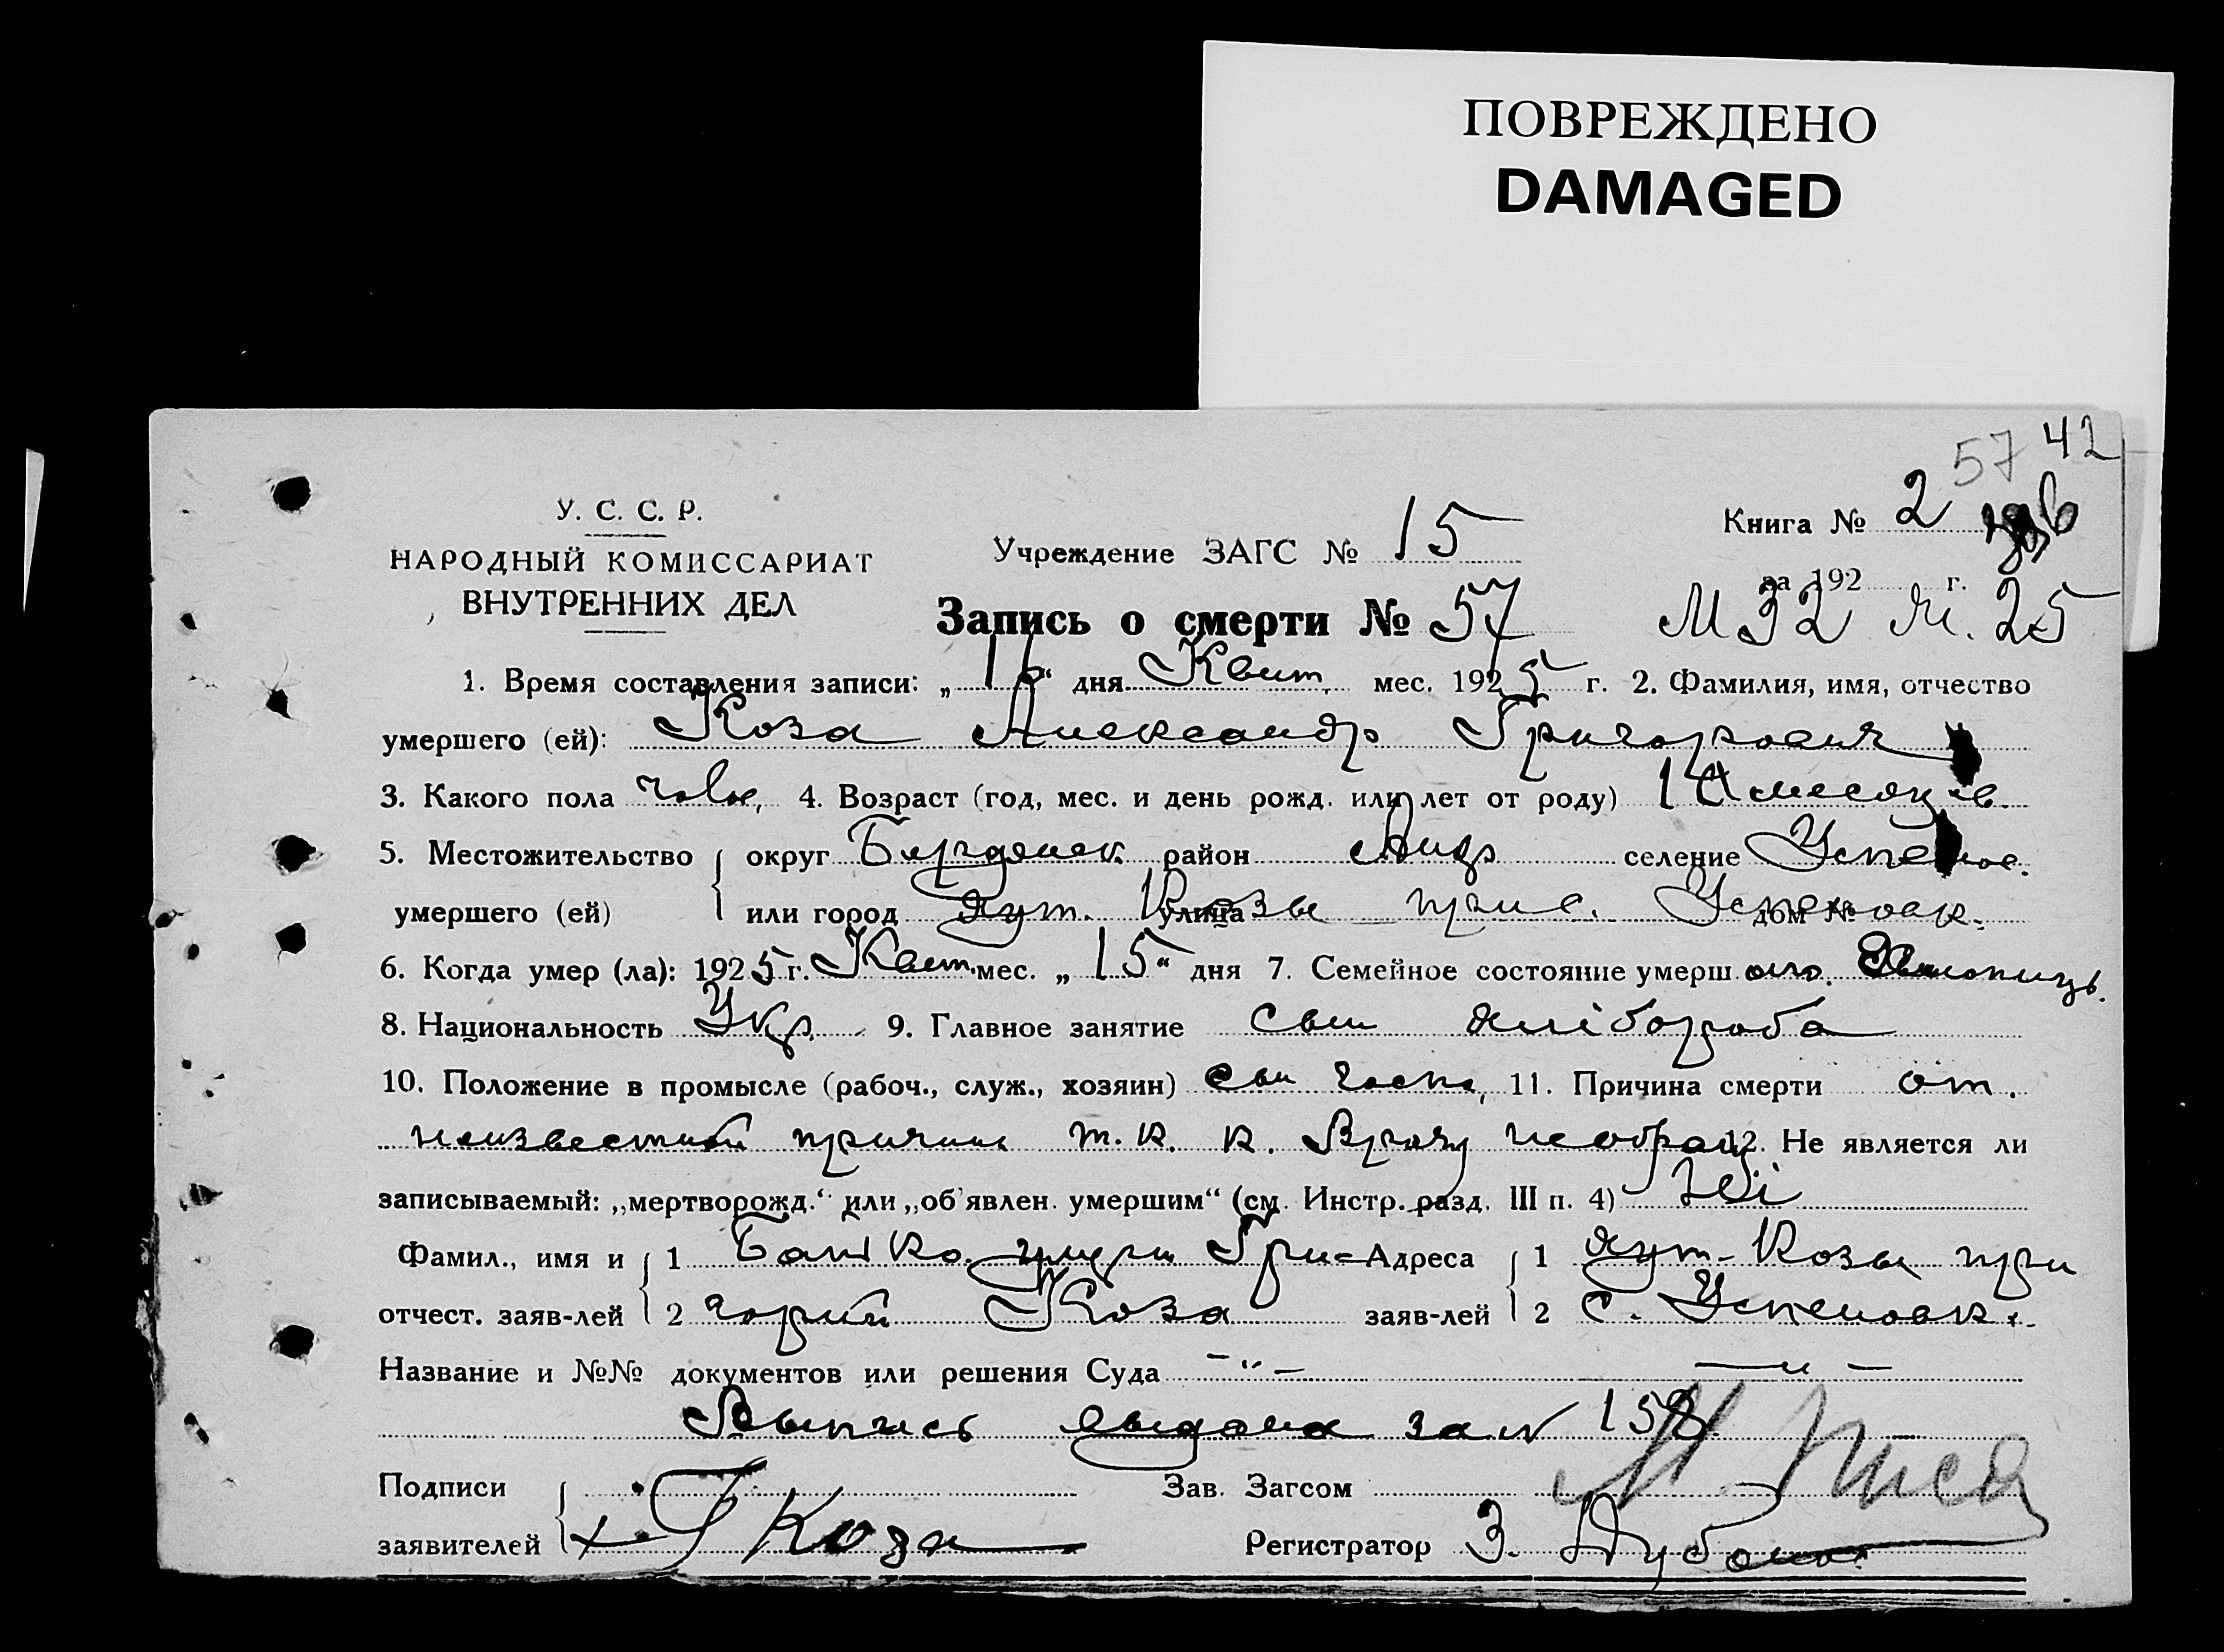 ПОВРЕЖДЕНО
DAMAGED
57 42
У. С. С. Р.
НАРОДНЫЙ КОМИССАРИАТ
ВНУТРЕННИХ ДЕЛ
Учреждение ЗАГС № 15
Книга № 2
за 192 г.
Запись о смерти № 57
М 32 М. 25
1. Время составления записи: „16“ дня Квит. мес. 1925 г. 2. Фамилия, имя, отчество
умершего (ей): Коза Александр Григорович
3. Какого пола чолов. 4. Возраст (год, мес. и день рожд. или лет от роду) 1 месяцев.
5. Местожительство округ Бердянск. район селение Успенов.
умершего (ей) или город хут. улица Козы при с. дом № Успеновк.
6. Когда умер (ла): 1925 г. Квит. мес. „15“ дня 7. Семейное состояние умерш ого.
8. Национальность Укр. 9. Главное занятие син хлібороба
10. Положение в промысле (рабоч., служ., хозяин) син 11. Причина смерти от
неизвестной причины т. к. к. врачу необращ. 12. Не является ли
записываемый: „мертворожд.“ или „об'явлен. умершим“ (см. Инстр. разд. III п. 4) Ні
Фамил., имя и 1 Батько Гри- Адреса 1 хут. Козы при
отчест. заяв-лей 2 горий Коза заяв-лей 2 с. Успеновк.
Название и №№ документов или решения Суда -"- -"-
Выпись выдана за № 158
Подписи Зав. Загсом
заявителей Г Коза Регистратор З.